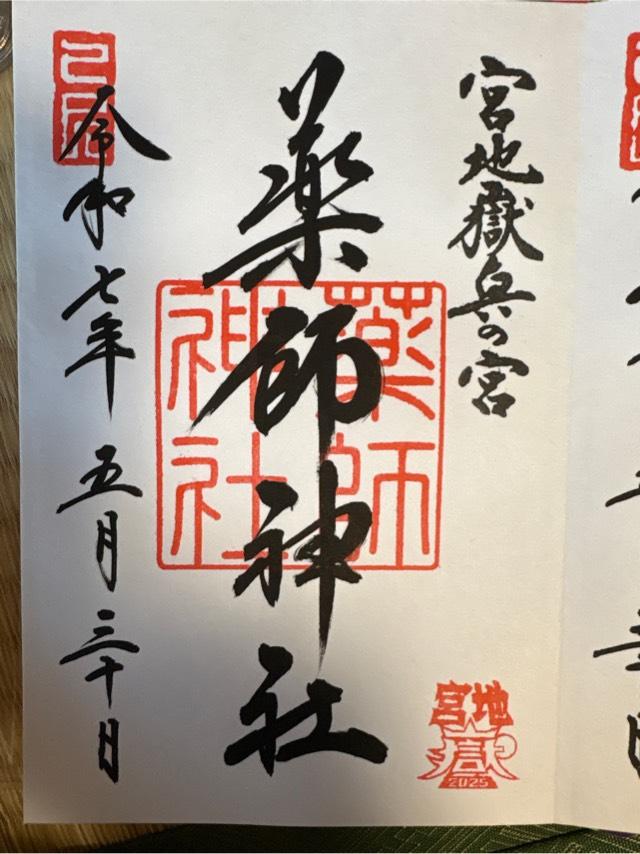 宮地嶽奥の宮
薬師神社
薬師
神社
令和七年 五月 三十日
宮地
嶽
2025